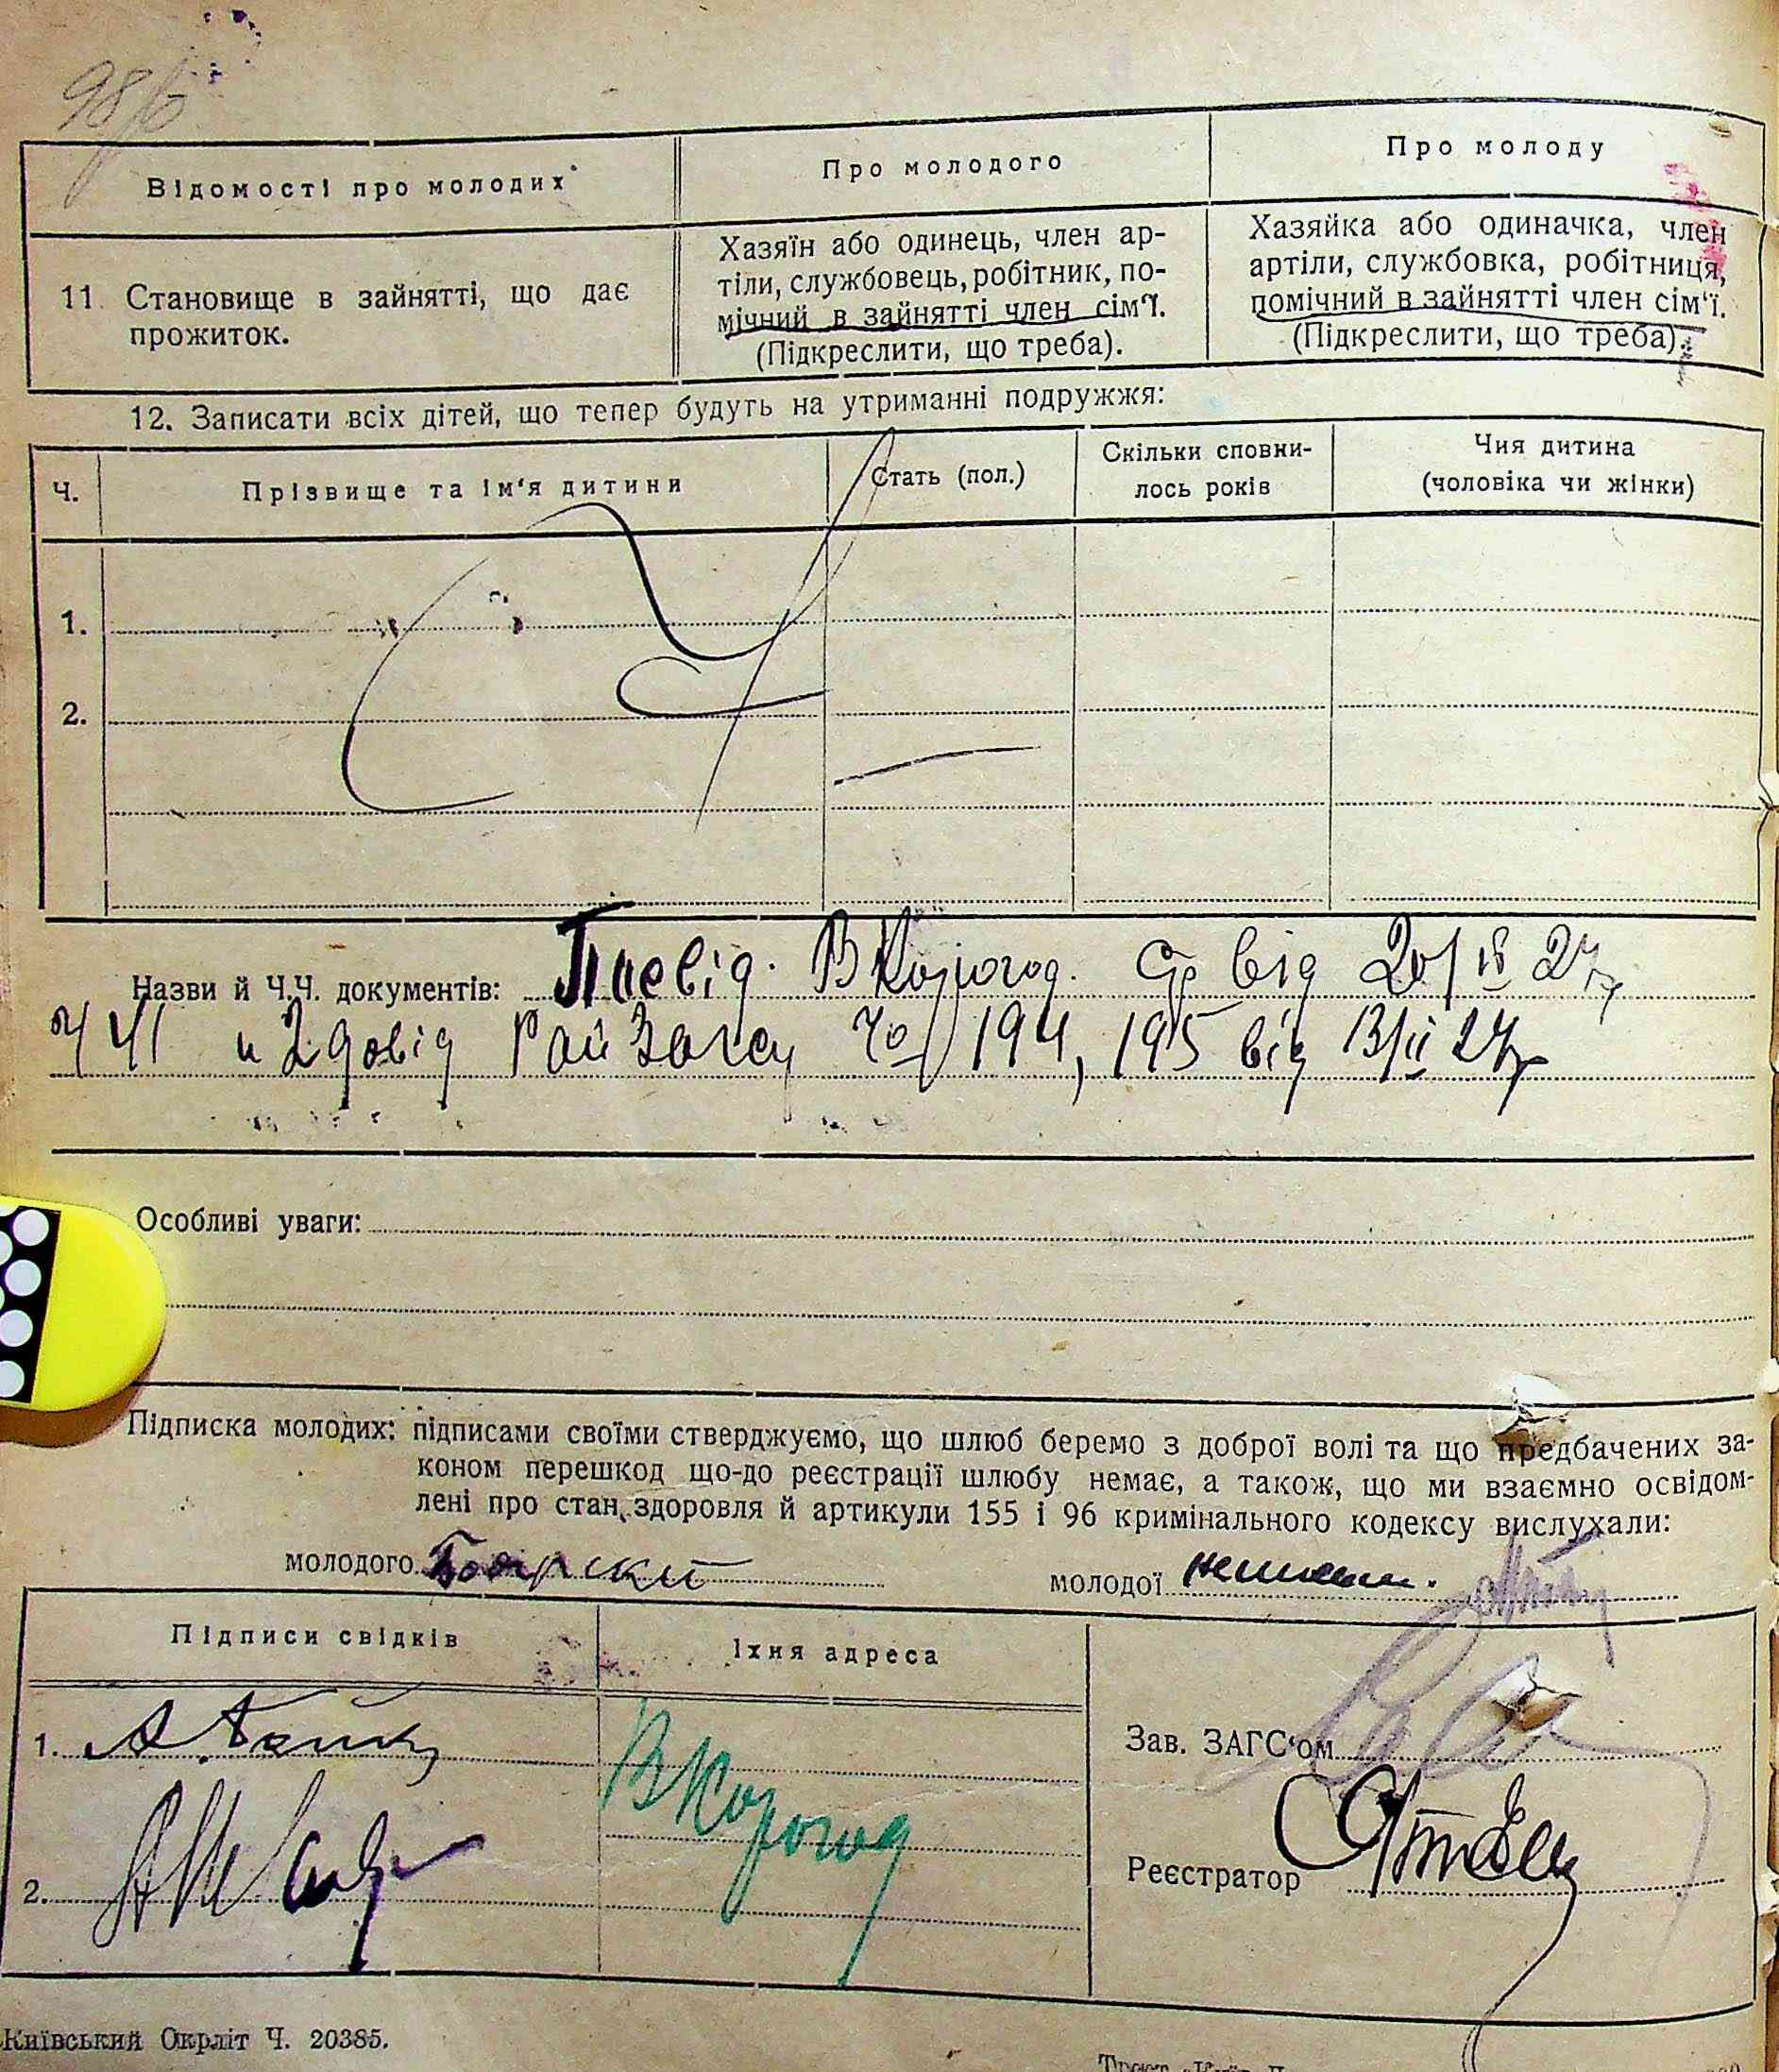 98/б
Відомості про молодих
Про молодого
Про молоду
11. Становище в зайнятті, що дає
прожиток.
Хазяїн або одинець, член ар-
тіли, службовець, робітник, по-
мічний в зайнятті член сім'ї.
(Підкреслити, що треба).
Хазяйка або одиначка, член
артіли, службовка, робітниця,
помічний в зайнятті член сім'ї.
(Підкреслити, що треба).
12. Записати всіх дітей, що тепер будуть на утриманні подружжя:
Ч.
Прізвище та ім'я дитини
Стать (пол.)
Скільки сповни-
лось років
Чия дитина
(чоловіка чи жінки)
1.
2.
Назви й Ч.Ч. документів: Посвід. ВКорогод. ср від 20/
и 2 довід РайЗагсу 194, 195 від 13/II 27р
Особливі уваги:
Підписка молодих: підписами своїми стверджуємо, що шлюб беремо з доброї волі та що предбачених за-
коном перешкод що-до реєстрації шлюбу немає, а також, що ми взаємно освідом-
лені про стан здоровля й артикули 155 і 96 кримінального кодексу вислухали:
молодого Боярский
молодої неписьм.
Підписи свідків
Їхня адреса
1.
ВКорогод
2.
Зав. ЗАГС'ом
Реєстратор
Київський Окрліт Ч. 20385.